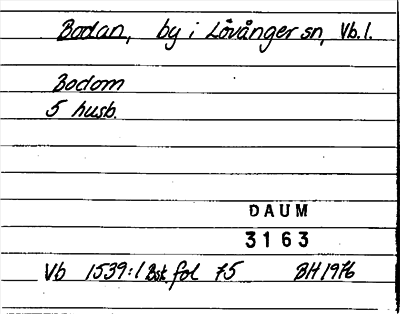 Bodan, by i Lövånger sn, Vb.l.
Bodom
5 husb.
DAUM
3163
Vb 1539:1 Bsk. fol 75 BH 1976